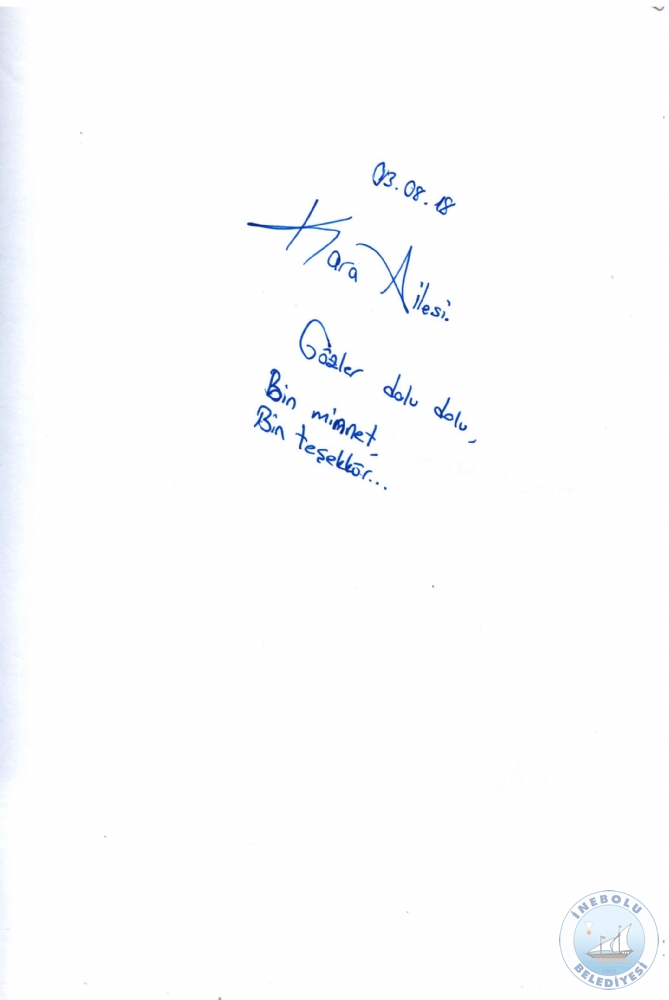 03.08.18
Kara Ailesi.
Gözler dolu dolu,
Bin minnet,
Bin teşekkür...
İNEBOLU
BELEDİYESİ